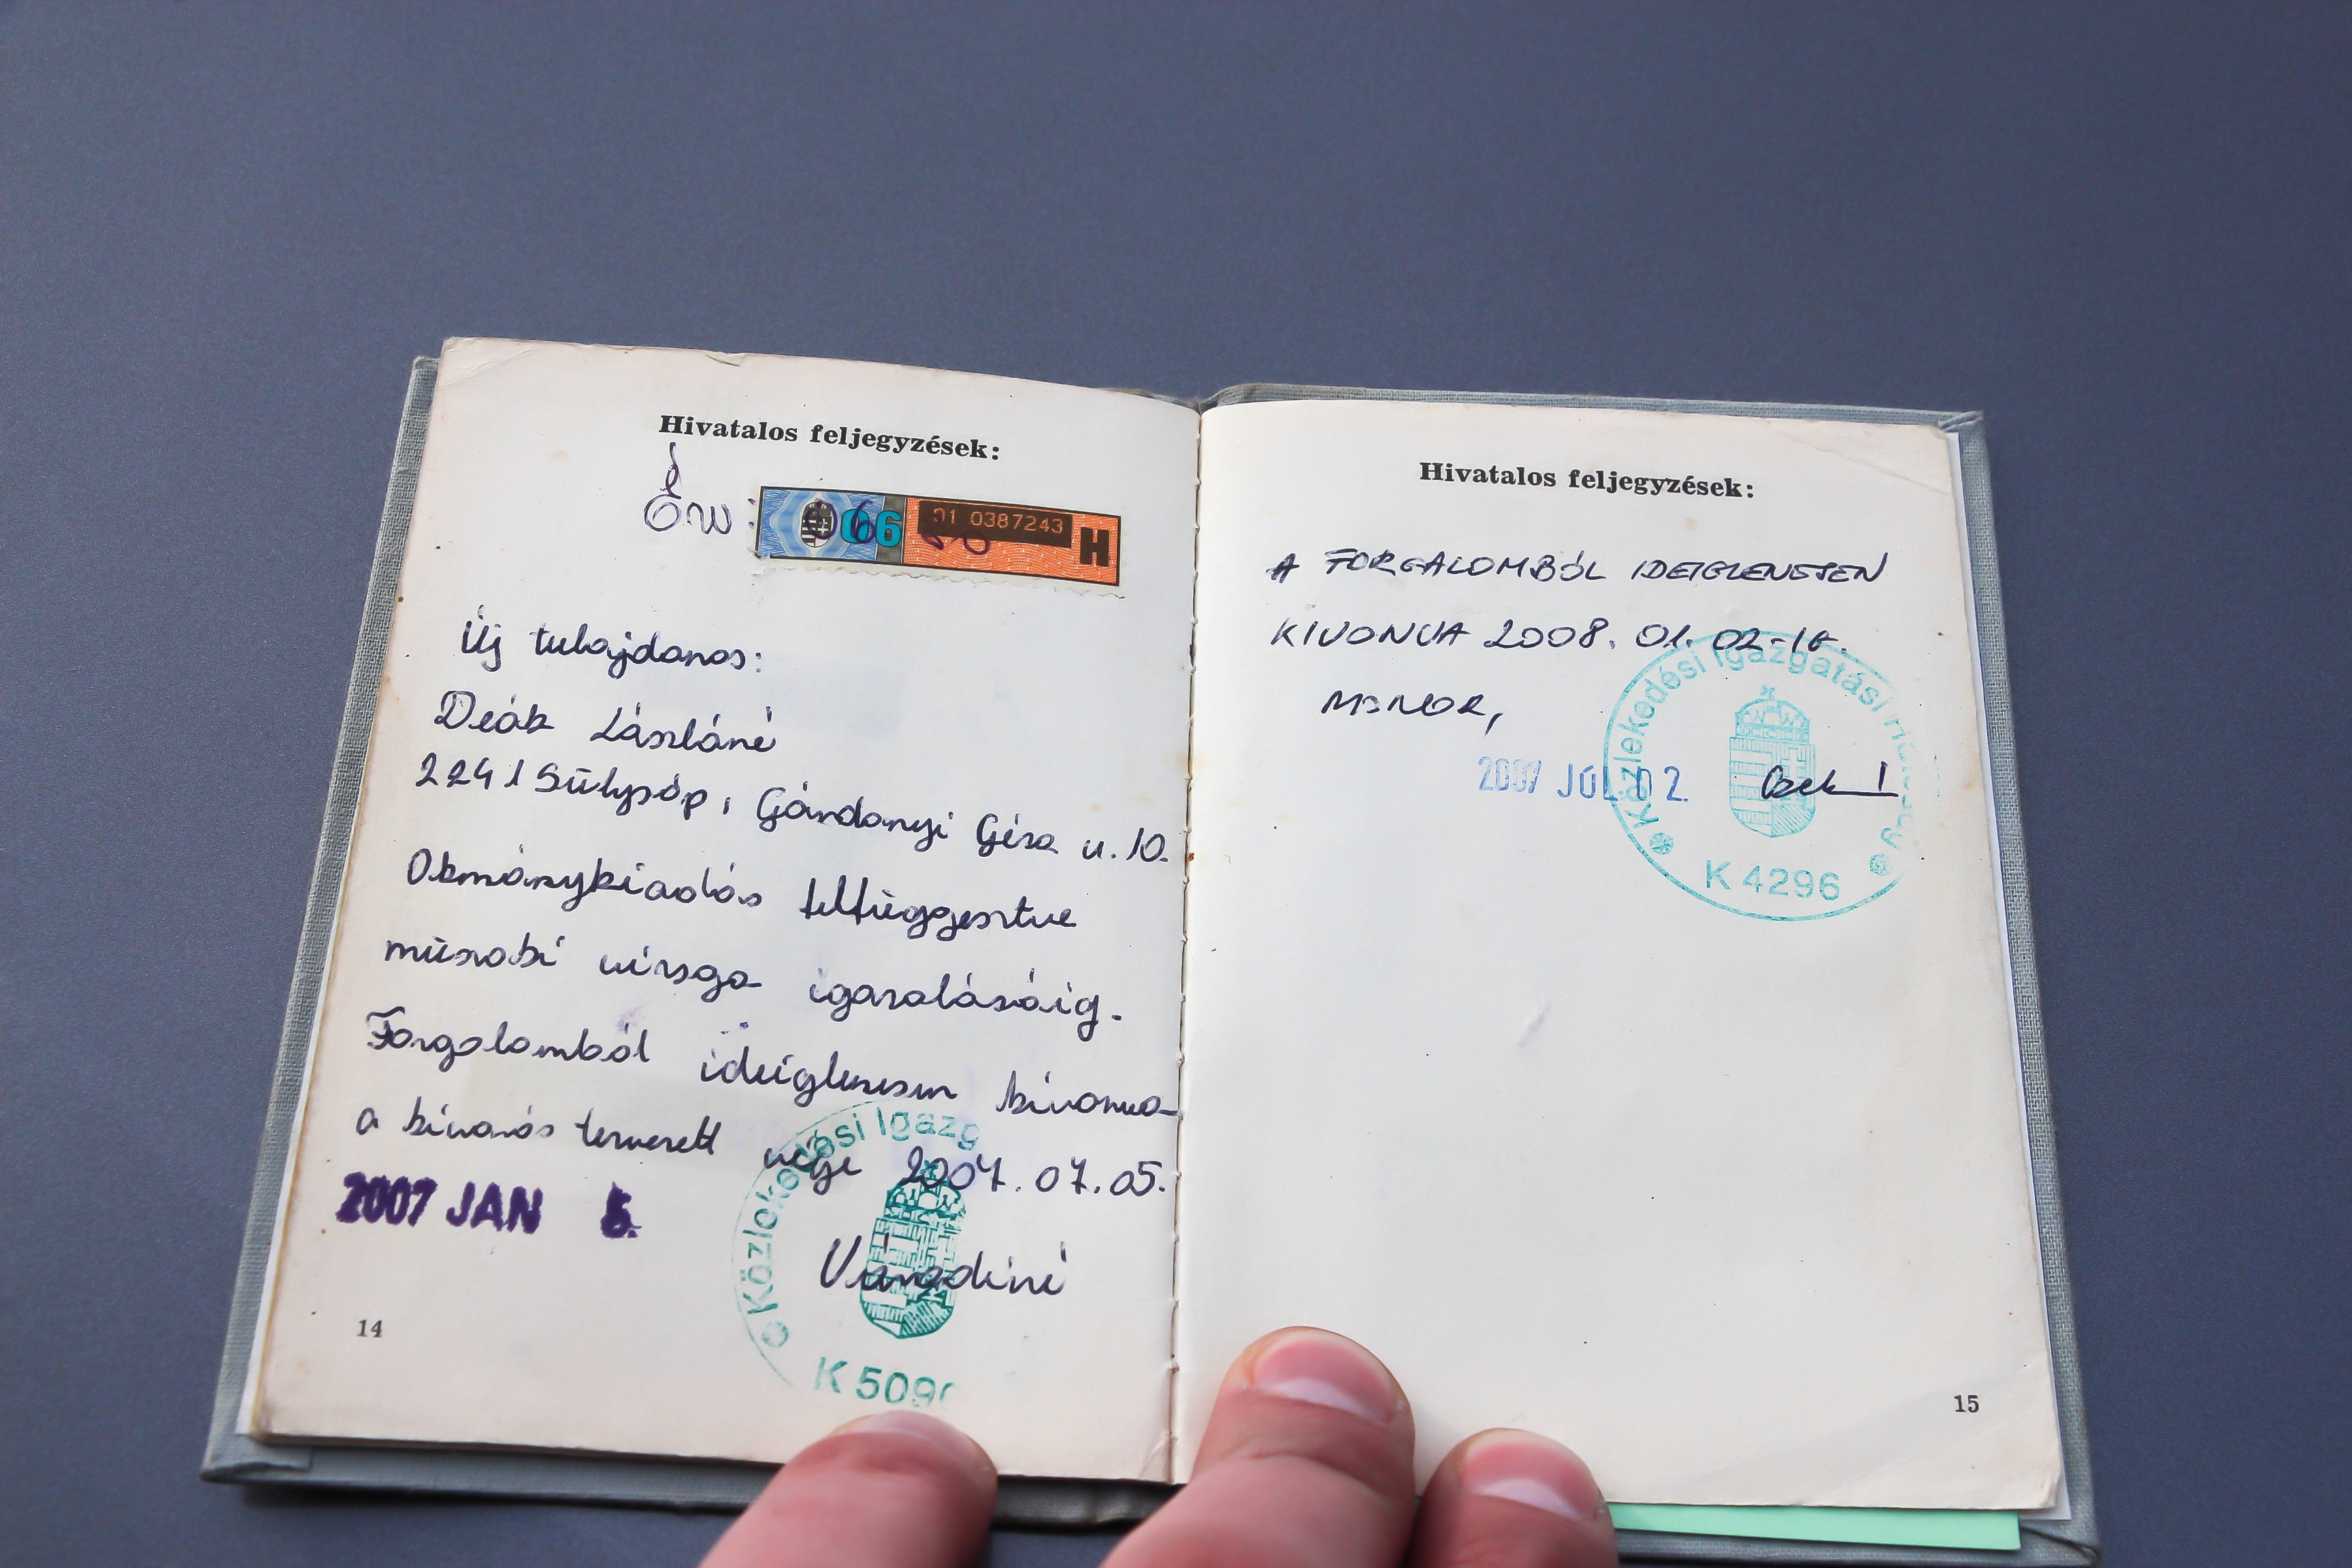 Hivatalos feljegyzések:
Érv:
06
01 0387243
H
Új tulajdonos:
Deák Lászláné
2241 Sülysáp, Gárdonyi Géza u. 10.
Okmánykiadás felfüggesztve
műszaki vizsga igazolásáig.
Forgalomból ideiglenesen kivonva
a kivonás tervezett vége 2007. 07. 05.
2007 JAN 5.
Közlekedési Igazg
K 509
14
Hivatalos feljegyzések:
A FORGALOMBÓL IDEIGLENESEN
KIVONVA 2008. 01. 02-IG.
MONOR,
2007 JÚL 02.
Közlekedési Igazgatási
K 4296
15